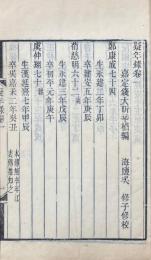 疑年錄卷
嘉定錢大昕 編 海鹽吳 修子修校
鄭康成七十四
生永建二年丁卯
卒建安五年庚辰
荀慈明六十三
生永建三年戊辰
卒初平元年庚午
虞仲翔七十
生漢延熹七年甲辰
卒吳嘉禾二年癸丑